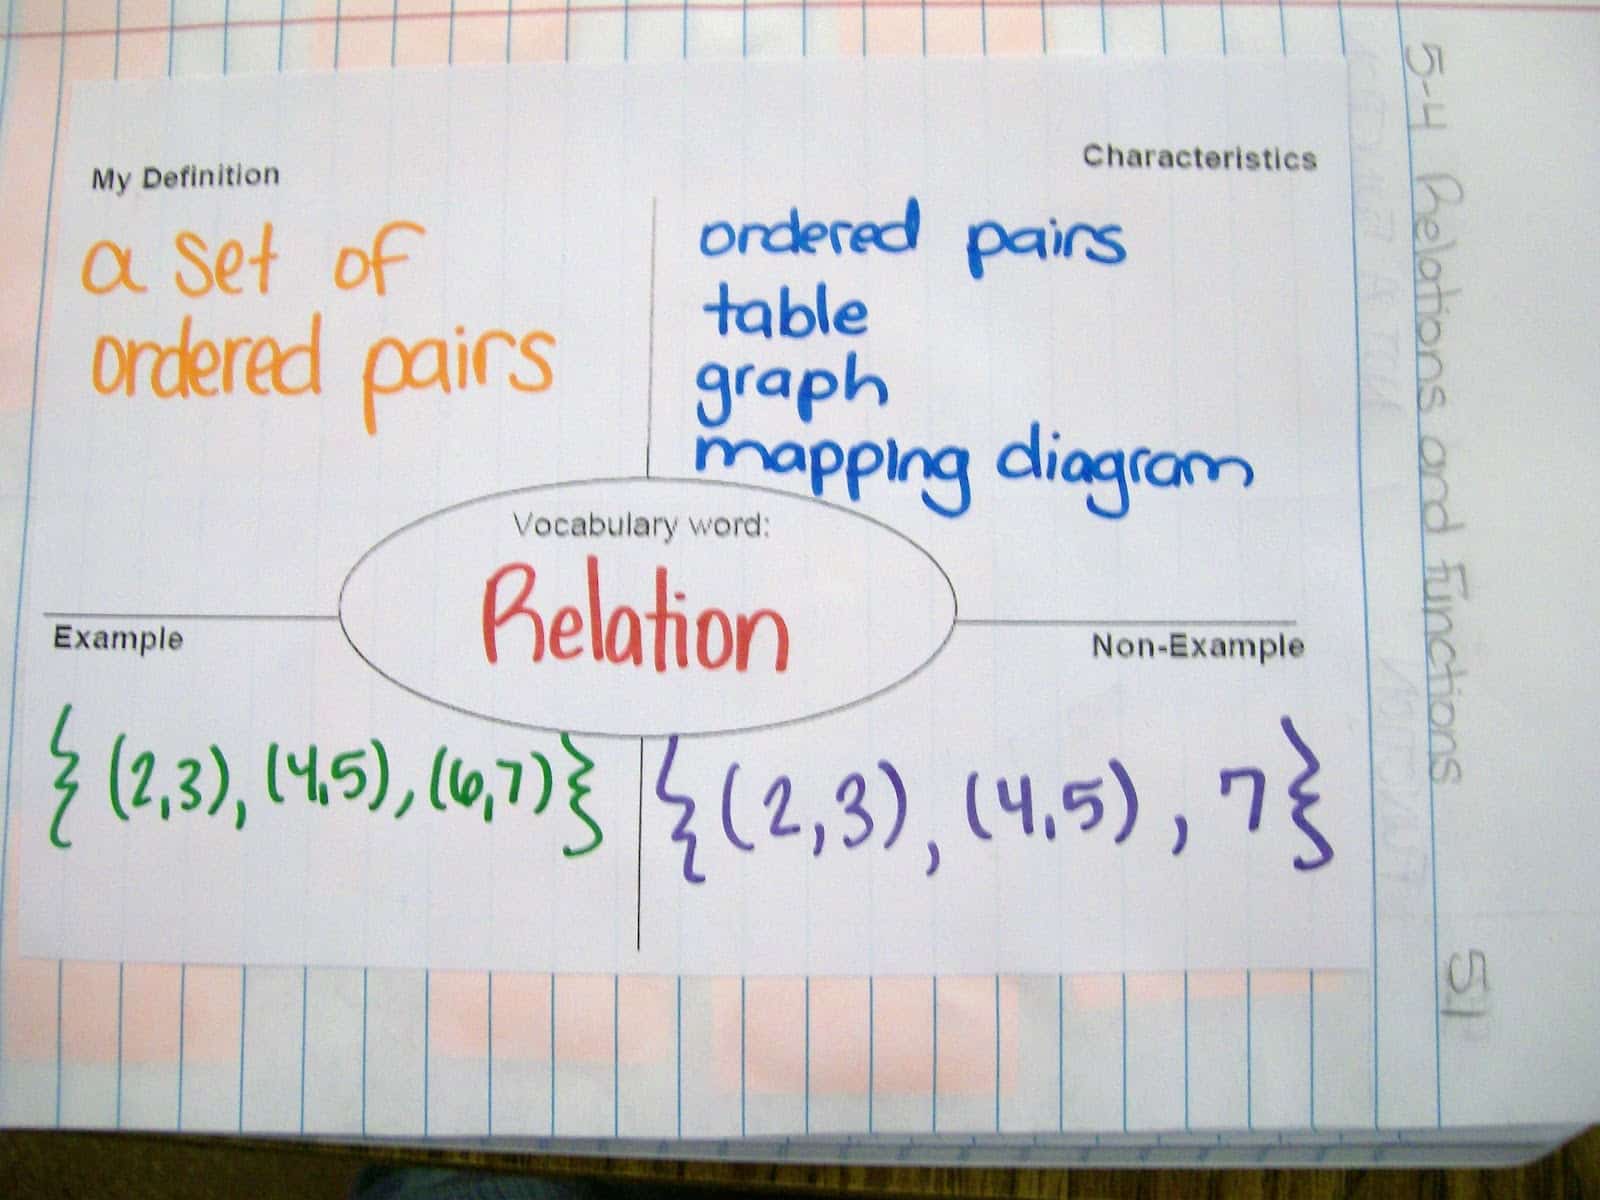 My Definition
a set of
ordered pairs
Characteristics
ordered pairs
table
graph
mapping diagram
Vocabulary word:
Relation
Example
{(2,3), (4,5), (6,7)}
Non-Example
{(2,3), (4,5), 7}
5-4 Relations and Functions
51